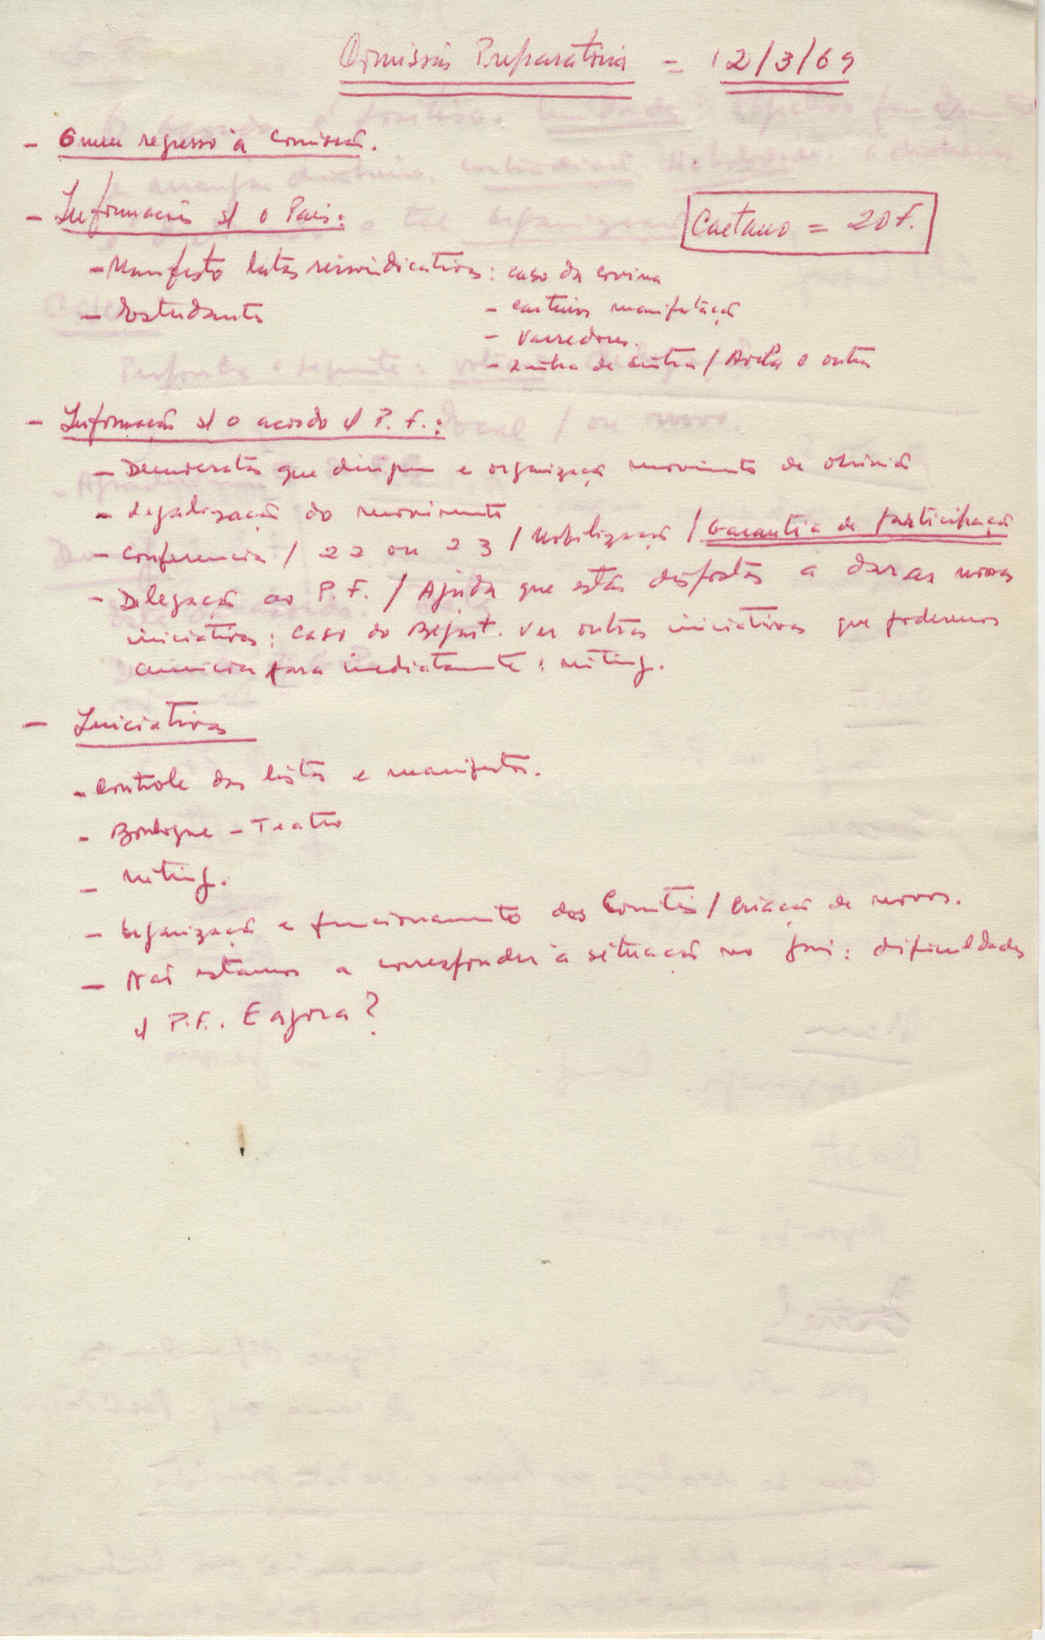 Comissão Preparatória = 12/3/69
- O meu regresso à Comissão.
- Informação s/ o País:
Caetano = 20 F.
- Manifesto lutas reivindicativas: caso da covina
- Estudantes
- carteiros manifestação
- Varredores.
- Linha de Sintra / e outras
- Informação s/ o acordo c/ P. F.:
- Democratas que dirigem e organização movimento de
- Legalização do movimento
- Conferencia / 22 ou 23 / Mobilização / Garantia de participação
- Delegação ao P. F. / Ajuda que estão dispostos a dar as novas
iniciativas: caso do . Ver outras iniciativas que podemos
para imediatamente: miting.
- Iniciativas
- Controle das listas e manifestos.
- Boulogne - Teatro
- Miting.
- Organização e funcionamento dos Comités / Criação de novos.
- Não estamos a corresponder à situação no país: dificuldades
c/ P.F. E agora?